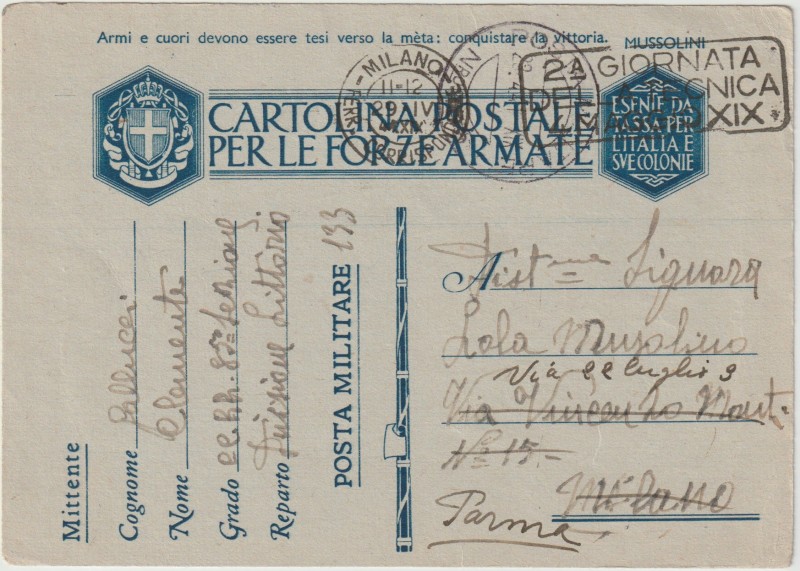 Armi e cuori devono essere tesi verso la mèta: conquistare la vittoria. MUSSOLINI
CARTOLINA POSTALE
PER LE FORZE ARMATE
ESENTE DA
TASSA PER
L'ITALIA E
SVE COLONIE
MILANO
11-12
29 IV
XIX
2A GIORNATA
DELLA TECNICA
MAGGIO XIX
POSTA
Mittente
Cognome Pellucci
Nome Clemente
Grado CC.RR. 83ª Sezione
Reparto Divisione Littorio
POSTA MILITARE 133
A Dist Signora
Lola Musolino
Via 22 Luglio 3
Via Vincenzo Monti
No 15.-
Milano
Parma